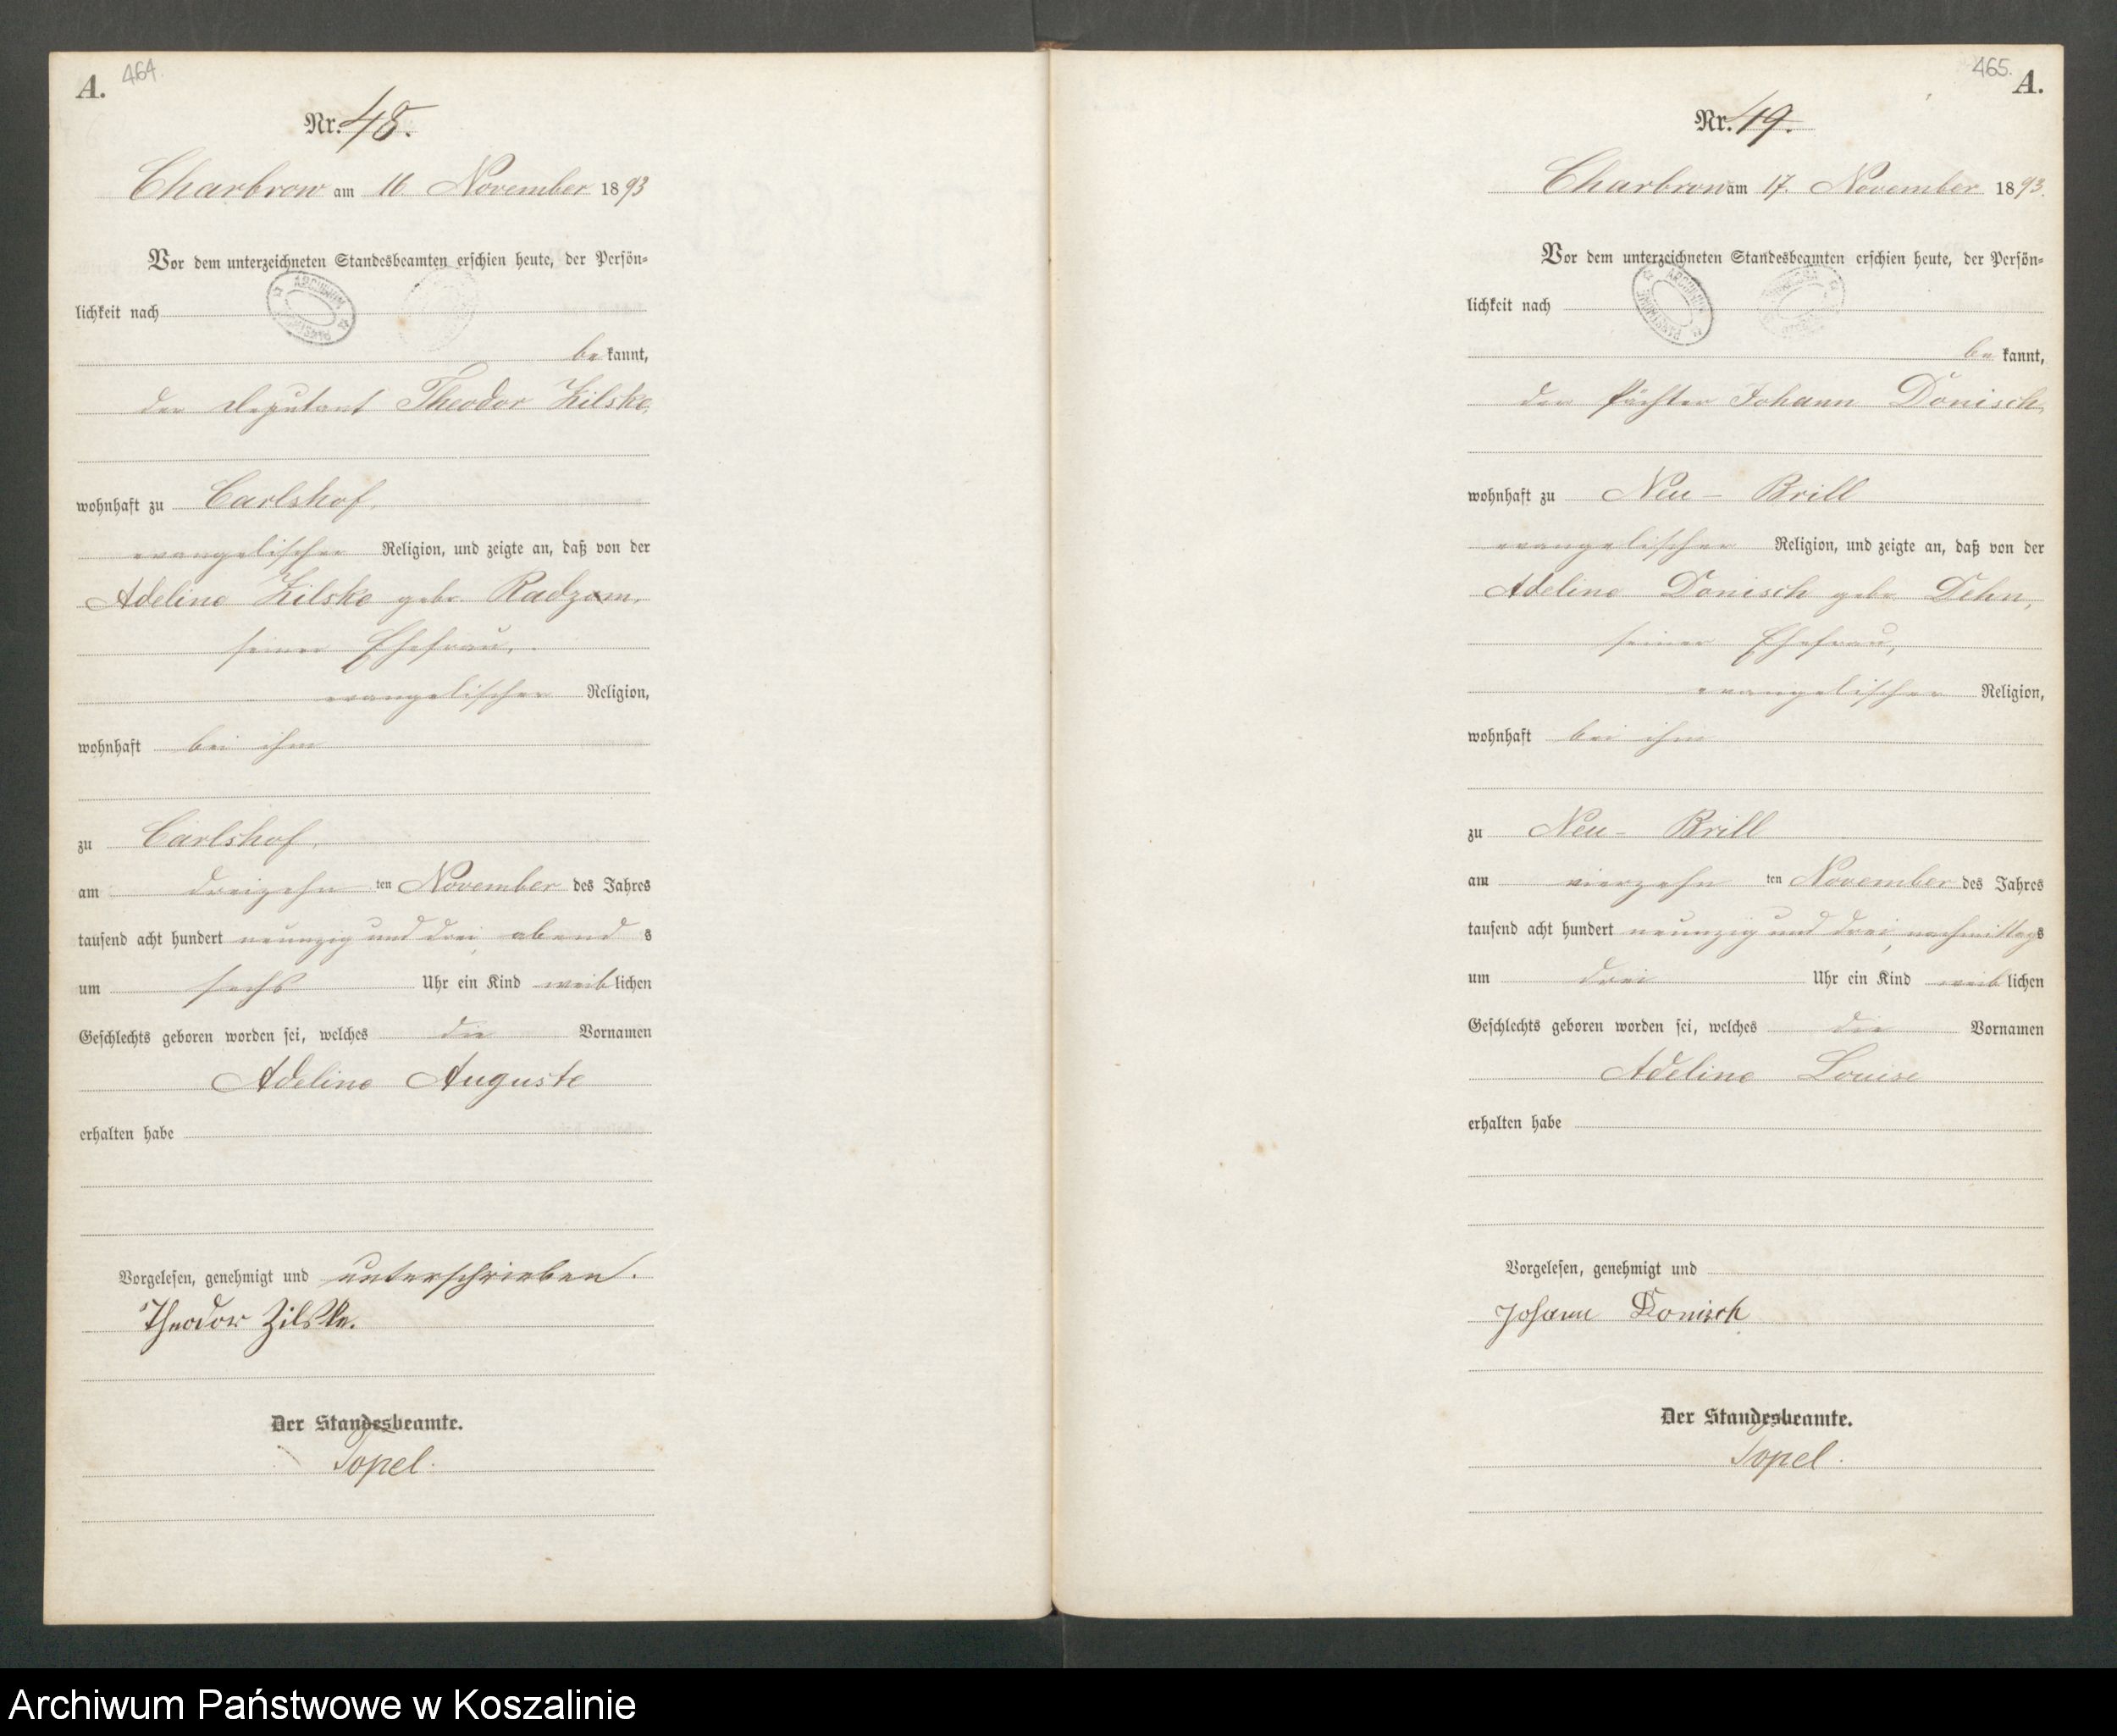 A. 464.
Nr. 48.
Charbrow am 16. November 1893
Vor dem unterzeichneten Standesbeamten erschien heute, der Persön-
lichkeit nach
ARCHIWUM
bekannt,
der Deputant Theodor Zilske,
wohnhaft zu Carlshof,
evangelischer Religion, und zeigte an, daß von der
Adeline Zilske geb. Radzom,
seiner Ehefrau,
evangelischer Religion,
wohnhaft bei ihm
zu Carlshof,
am dreizehn ten November des Jahres
tausend acht hundert neunzig und drei, abends
um sechs Uhr ein Kind weiblichen
Geschlechts geboren worden sei, welches die Vornamen
Adeline Auguste
erhalten habe
Vorgelesen, genehmigt und unterschrieben.
Theodor Zilske.
Der Standesbeamte.
Topel.
465. A.
Nr. 49.
Charbrow am 17. November 1893.
Vor dem unterzeichneten Standesbeamten erschien heute, der Persön-
lichkeit nach
ARCHIWUM PAŃSTWOWE
bekannt,
der Pächter Johann Donisch,
wohnhaft zu Neu-Brill
evangelischer Religion, und zeigte an, daß von der
Adeline Donisch geb. Dehn,
seiner Ehefrau,
evangelischer Religion,
wohnhaft bei ihm
zu Neu-Brill
am vierzehn ten November des Jahres
tausend acht hundert neunzig und drei, nachmittags
um drei Uhr ein Kind weiblichen
Geschlechts geboren worden sei, welches die Vornamen
Adeline Louise
erhalten habe
Vorgelesen, genehmigt und
Johann Donisch
Der Standesbeamte.
Topel.
Archiwum Państwowe w Koszalinie